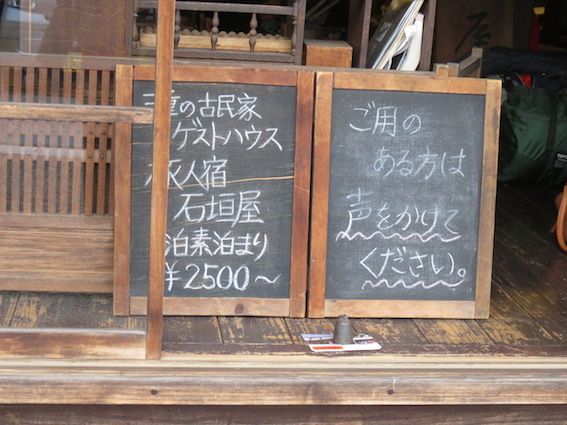 三重の古民家
ゲストハウス
旅人宿
石垣屋
泊素泊まり
¥2500〜
ご用の
ある方は
声をかけて
ください。
屋